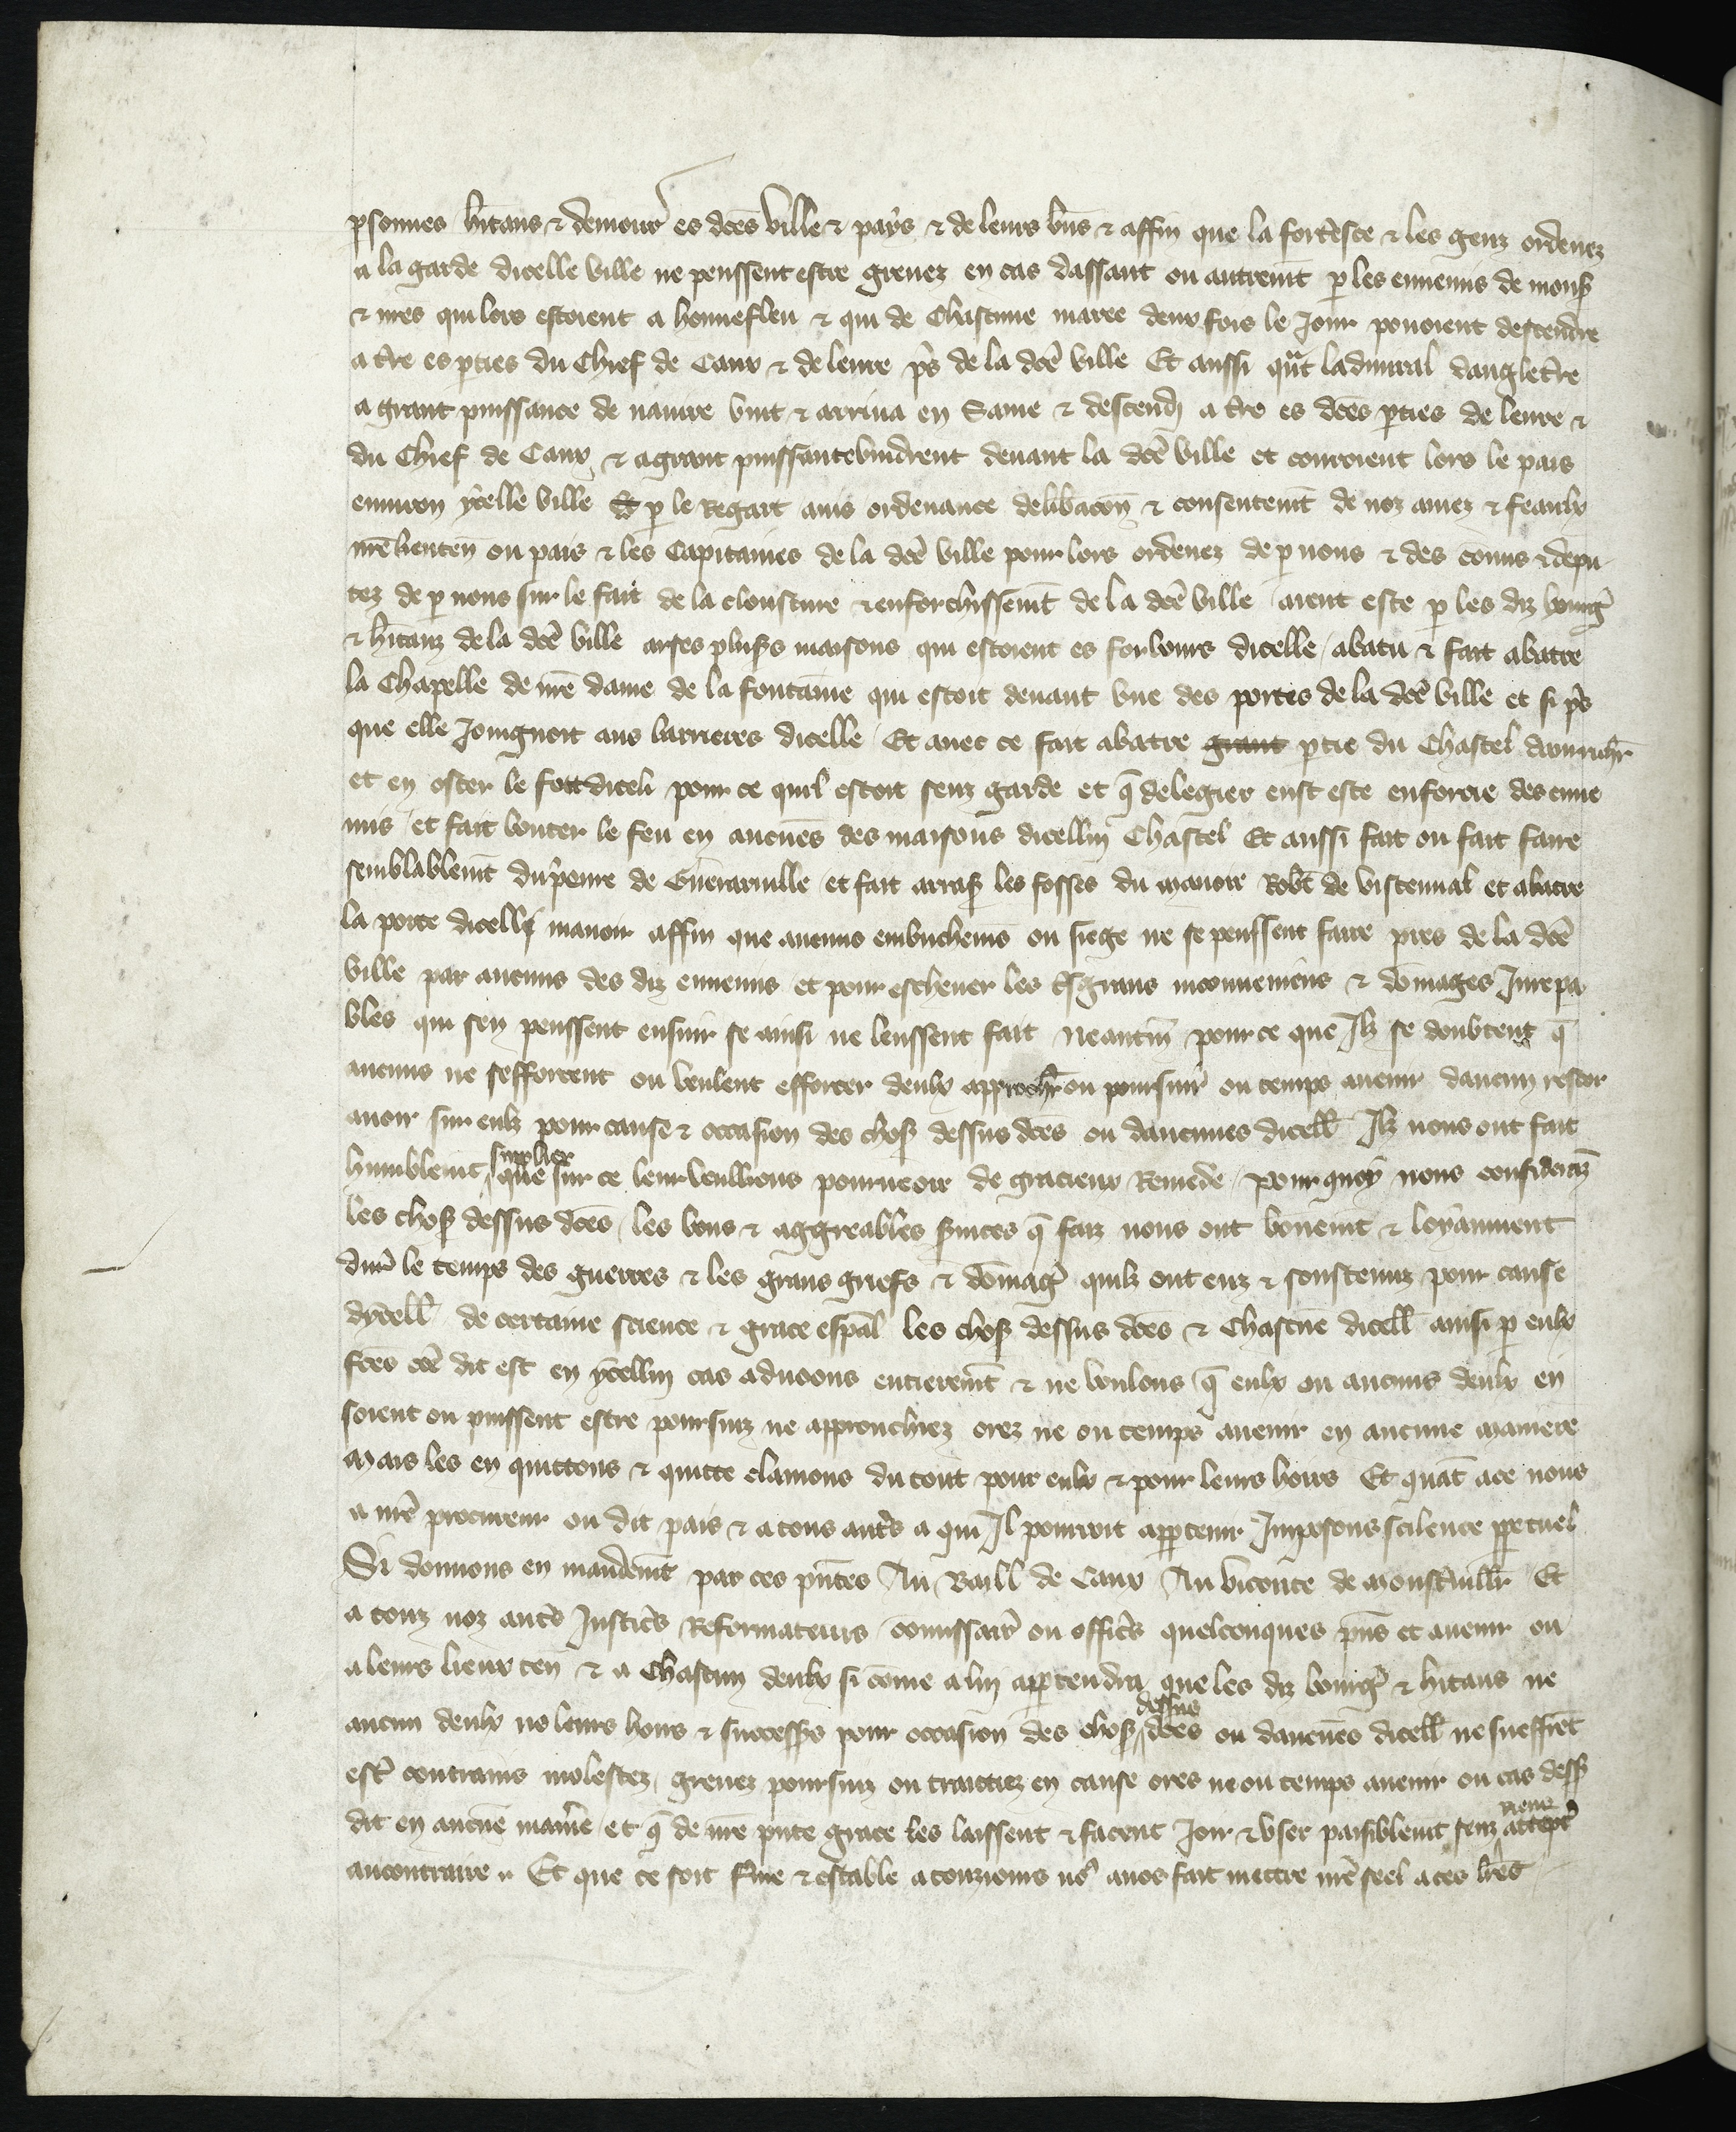 psonnes hitans & demour es dces ville & pays & de leurs biens & affin que la fortesce & les genz ordenez
a la garde dicelle ville ne peussent estre greuez en cas dassaut ou autremt p les ennemis de mons
& nres qui lors estoient a honnefleu & qui de Chascune maree deux fois le Jour pouoient descendre
a tre es pties du Chief de Caux & de leure pres de la dce ville Et aussi qut ladmiral dangletre
a grant puissance de nauire vint & arriua en Saine & descendi a tre es dces pties de leure &
du Chief de Caux & a grant puissance vindrent deuant la dce ville et couroient lors le pais
enuiron ycelle ville p le Regart auis ordenance delibacon & consentemt de noz amez & feaulx
nre lieuten ou pais & les Capitaines de la dce ville pour lors ordenez de p nous & des comis & depu
tez de p nous sur le fait de la closture & enforchissemt de la dce ville aient este p les diz bourg
& hitanz de la dce ville arses plusrs maisons qui estoient es forbours dicelle / abatu & fait abatre
la Chapelle de nre dame de la fontaine qui estoit deuant vne des portes de la dce ville et si pres
que elle Joingnoit aus barrieres dicelle / Et auec ce fait abatre grant ptie du Chastel
et en oster le fort diceli pour ce quil estoit senz garde et q de legier eust este enforcie des enne
mis / et fait bouter le feu en aucunes des maisons dicellui Chastel Et aussi fait ou fait faire
semblablemt du preure de Guerarville et fait arraser les fosses du manoir Robt de Vistenual et abatre
la porte dicelli manoir affin que aucuns embuchemens ou siege ne se peussent faire pres de la dce
ville par aucuns des diz ennemis et pour escheuer les tsgrans inconueniens & domages Inrepa
bles qui sen peussent ensuir se ainsi ne leussent fait Neantm pour ce que Ilz se doubtent q
aucuns ne sefforcent ou veulent efforcer deulx approchr ou poursuir ou temps auenir daucun restor
auoir sur eulz pour cause & occasion des choses dessus dces ou daucunes dicell Ilz nous ont fait
humblemt supplier que sur ce leur veullions pourueoir de gracieux Remede / Pour quoy nous considerz
les choses dessus dces les bons & aggreables seruices q faiz nous ont bonemt & loyaument
durant le temps des guerres & les grans griefs & domages quilz ont euz & soustenuz pour cause
dycell de certaine science & grace espal les choses dessus dces & Chascune dicell ainsi p eulx
fces coe dit est en ycellui cas aduoons entieremt & ne voulons q eulx ou aucuns deulx en
soient ou puissent estre poursuiz ne approuchiez orez ne ou temps auenir en aucune maniere
Mais les en quittons & quitte clamons du tout pour eulx & pour leurs hoirs Et quat a ce nous
a nre procureur ou dit pais & a tous autrs a qui Il pourroit apptenir Imposons scilence ppetuel
Si donnons en mandemt par ces pntes Au Baill de Caux Au viconte de Monstiuillr Et
a touz noz autrs Justicrs Reformateurs comissairs ou officrs quelconques pns et auenir ou
a leurs lieux ten & a Chascun deulx si come a lui apptendra que les diz bourg & hitans ne
aucun deulx ne leurs hoirs & successrs pour occasion des choses dessus dces ou daucunes dicell ne sueffret
estre contrains molestez greuez poursuiz ou traittiez en cause ores ne ou temps auenir ou cas dess
dit en aucune manie et q de nre pnte grace les laissent & facent Joir & vser paisiblemt senz riens attept
au contraire Et que ce soit ferme & estable a touziours ns auos fait mettre nre seel a ces lres